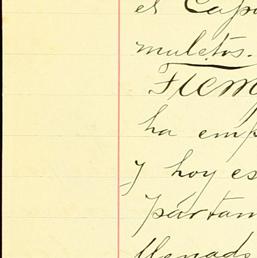 el Capi
muletos.
Firm
ha emp
y hoy es
partam
llenado